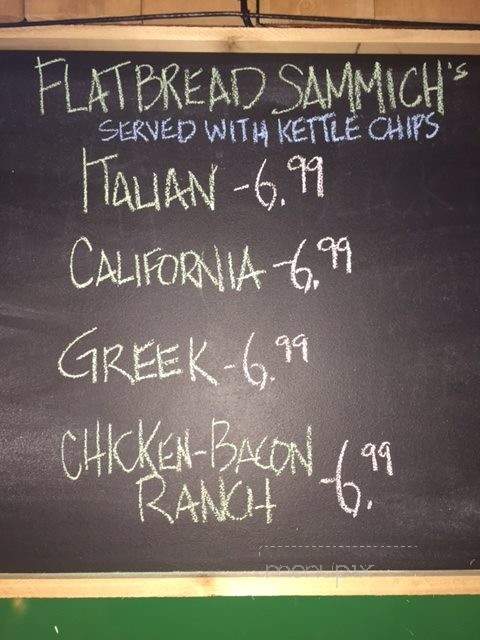 FLATBREAD SAMMICH'S
SERVED WITH KETTLE CHIPS
ITALIAN - 6.99
CALIFORNIA - 6.99
GREEK - 6.99
CHICKEN-BACON
RANCH - 6.99
menupix